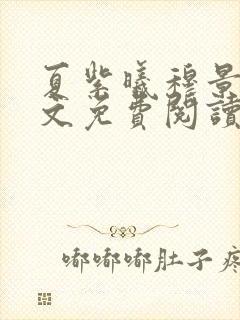 夏紫曦穆景
文免費閱讀
嘟嘟嘟肚子疼